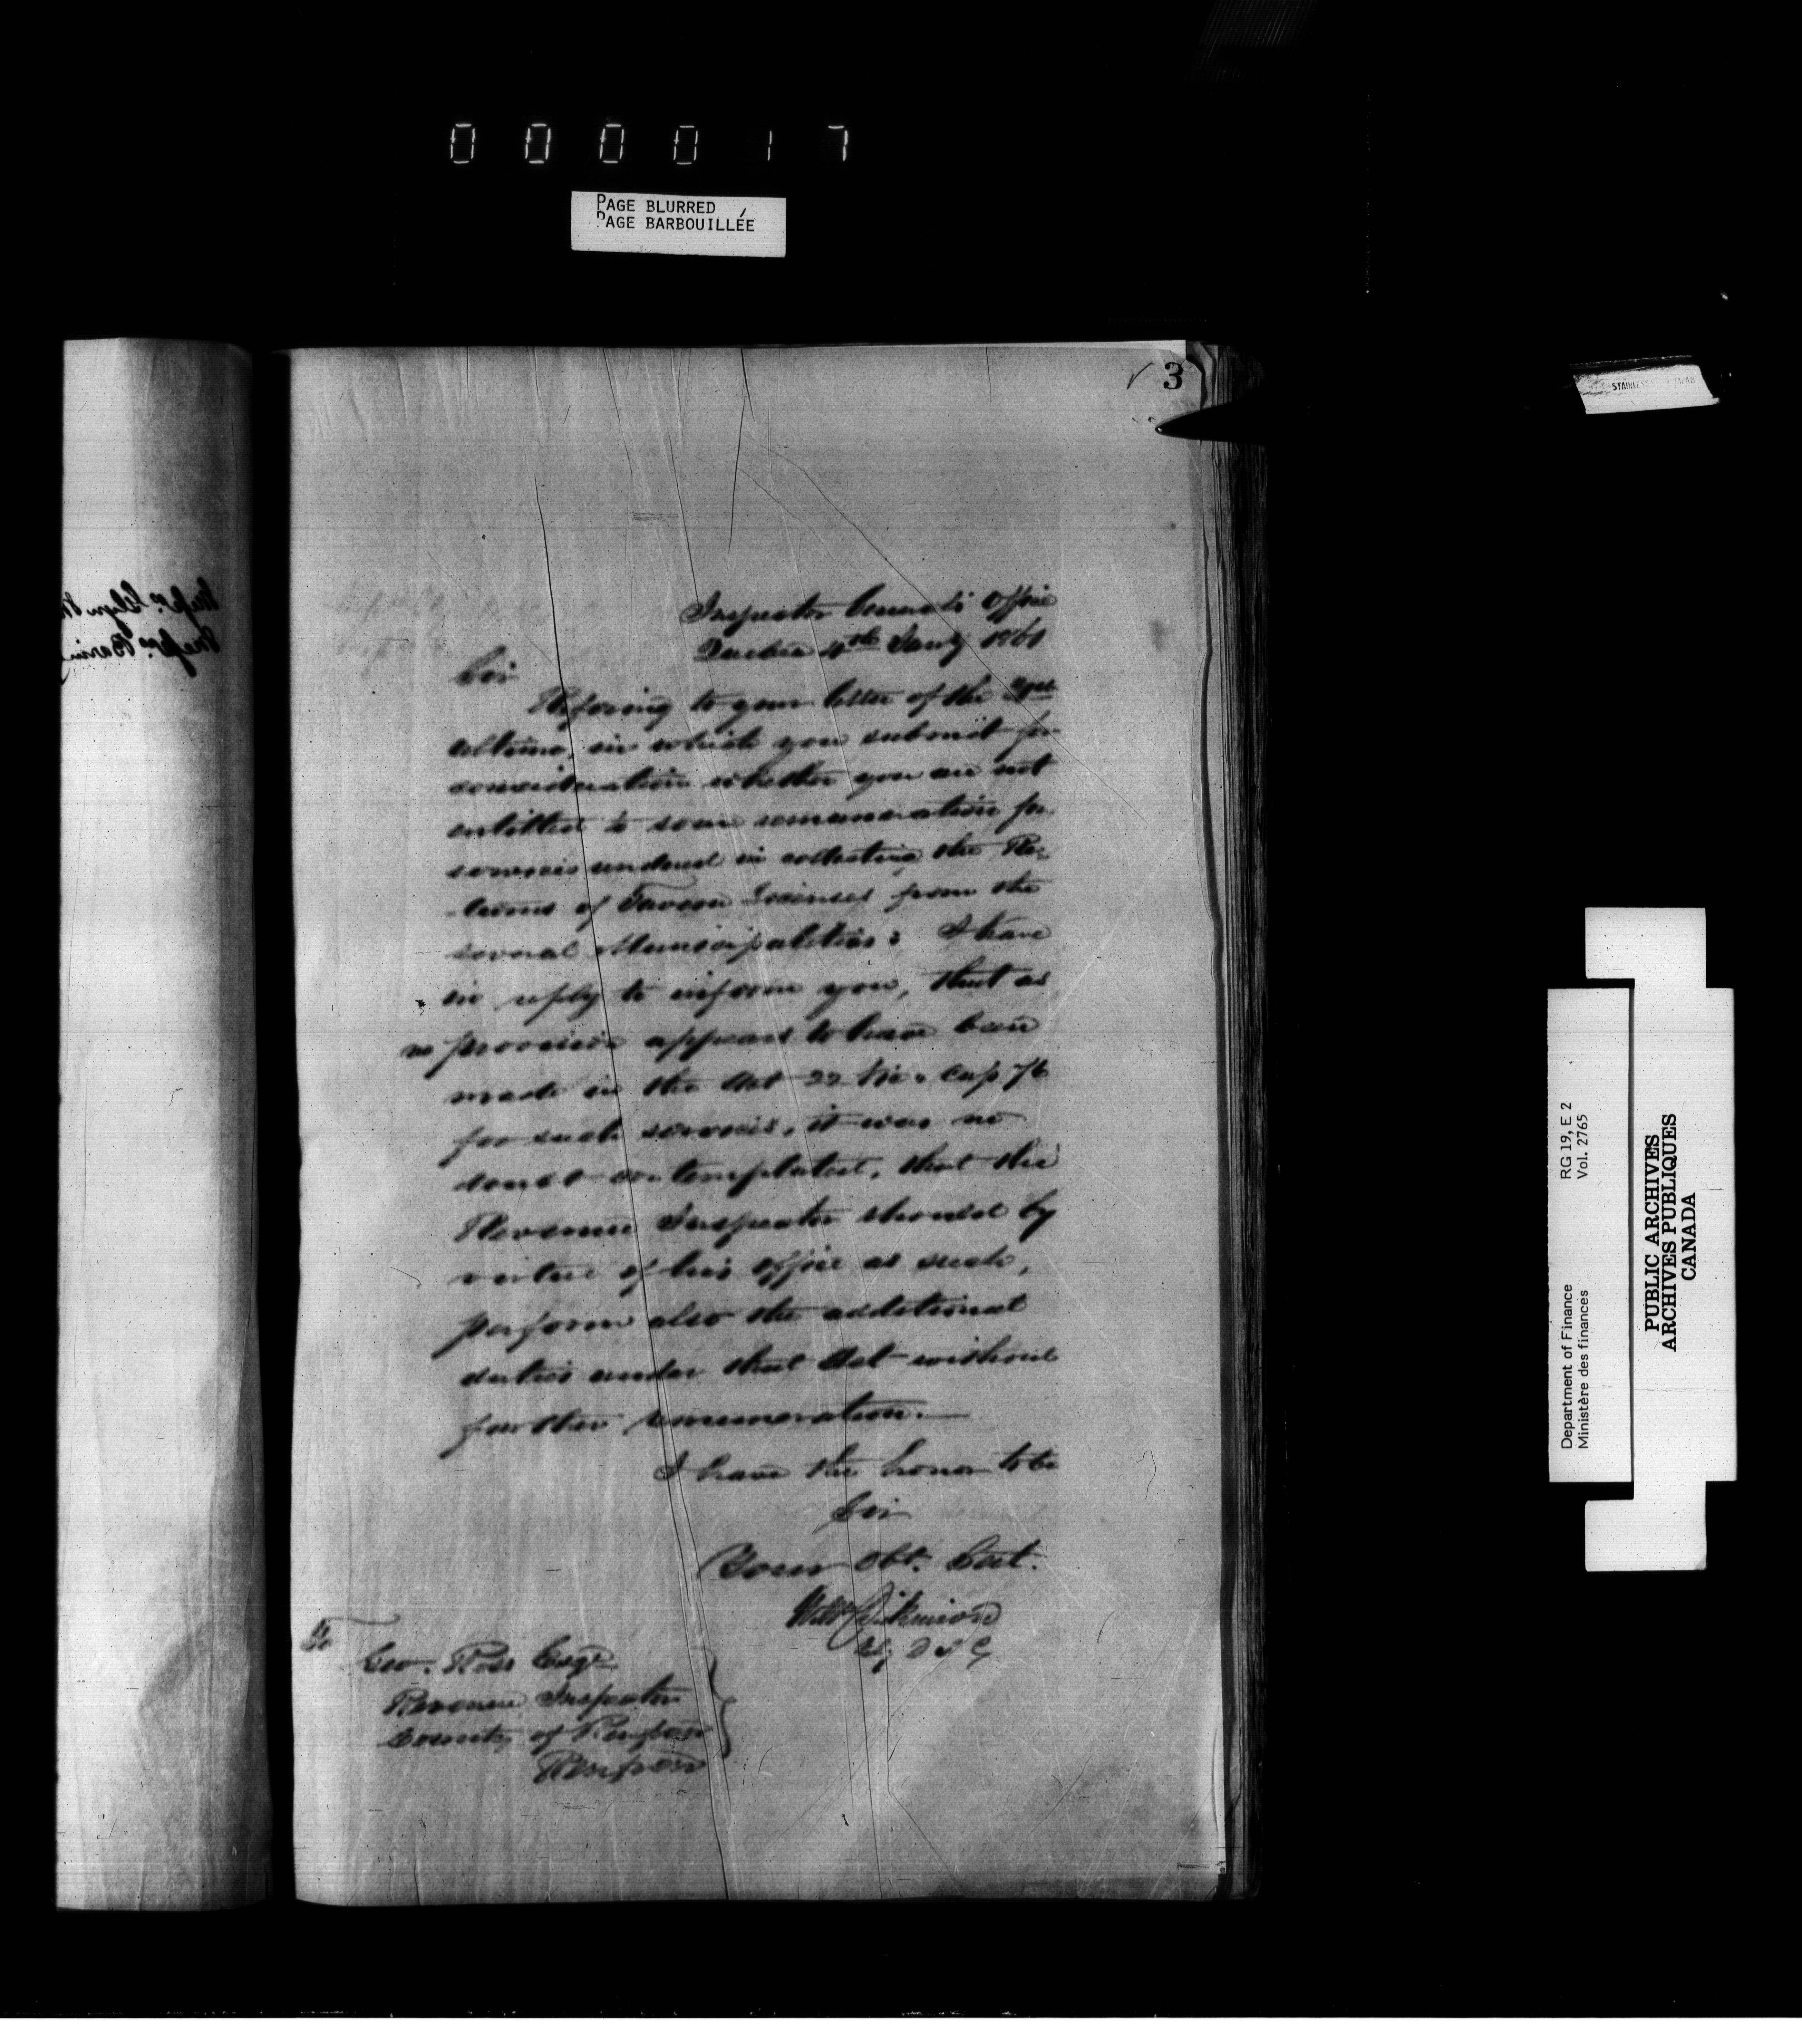 000017
PAGE BLURRED
PAGE BARBOUILLÉE
3
Inspector General's Office
Quebec 4th Jany 1861
Sir
Referring to your letter of the
ultimo, in which you submit for
consideration whether you are not
entitled to some remuneration for
services rendered in collecting the Re-
-turns of Tavern Licenses from the
several Municipalities; I have
in reply to inform you, that as
no provision appears to have been
made in the Act 22 Vic. Cap 76
for such services, it was no
doubt contemplated, that the
Revenue Inspector should by
virtue of his office as such,
perform also the additional
duties under that Act without
further remuneration.—
I have the honor to be
Sir
Your Obt. Servt.
Wm Dickinson
D I G
To
Geo. Ross Esqr
Revenue Inspector
County of Renfrew
Renfrew
Messrs. Glyn
Messrs. Baring
STAINLESS JAPAN
Department of Finance
Ministère des finances
RG 19, E 2
Vol. 2765
PUBLIC ARCHIVES
ARCHIVES PUBLIQUES
CANADA